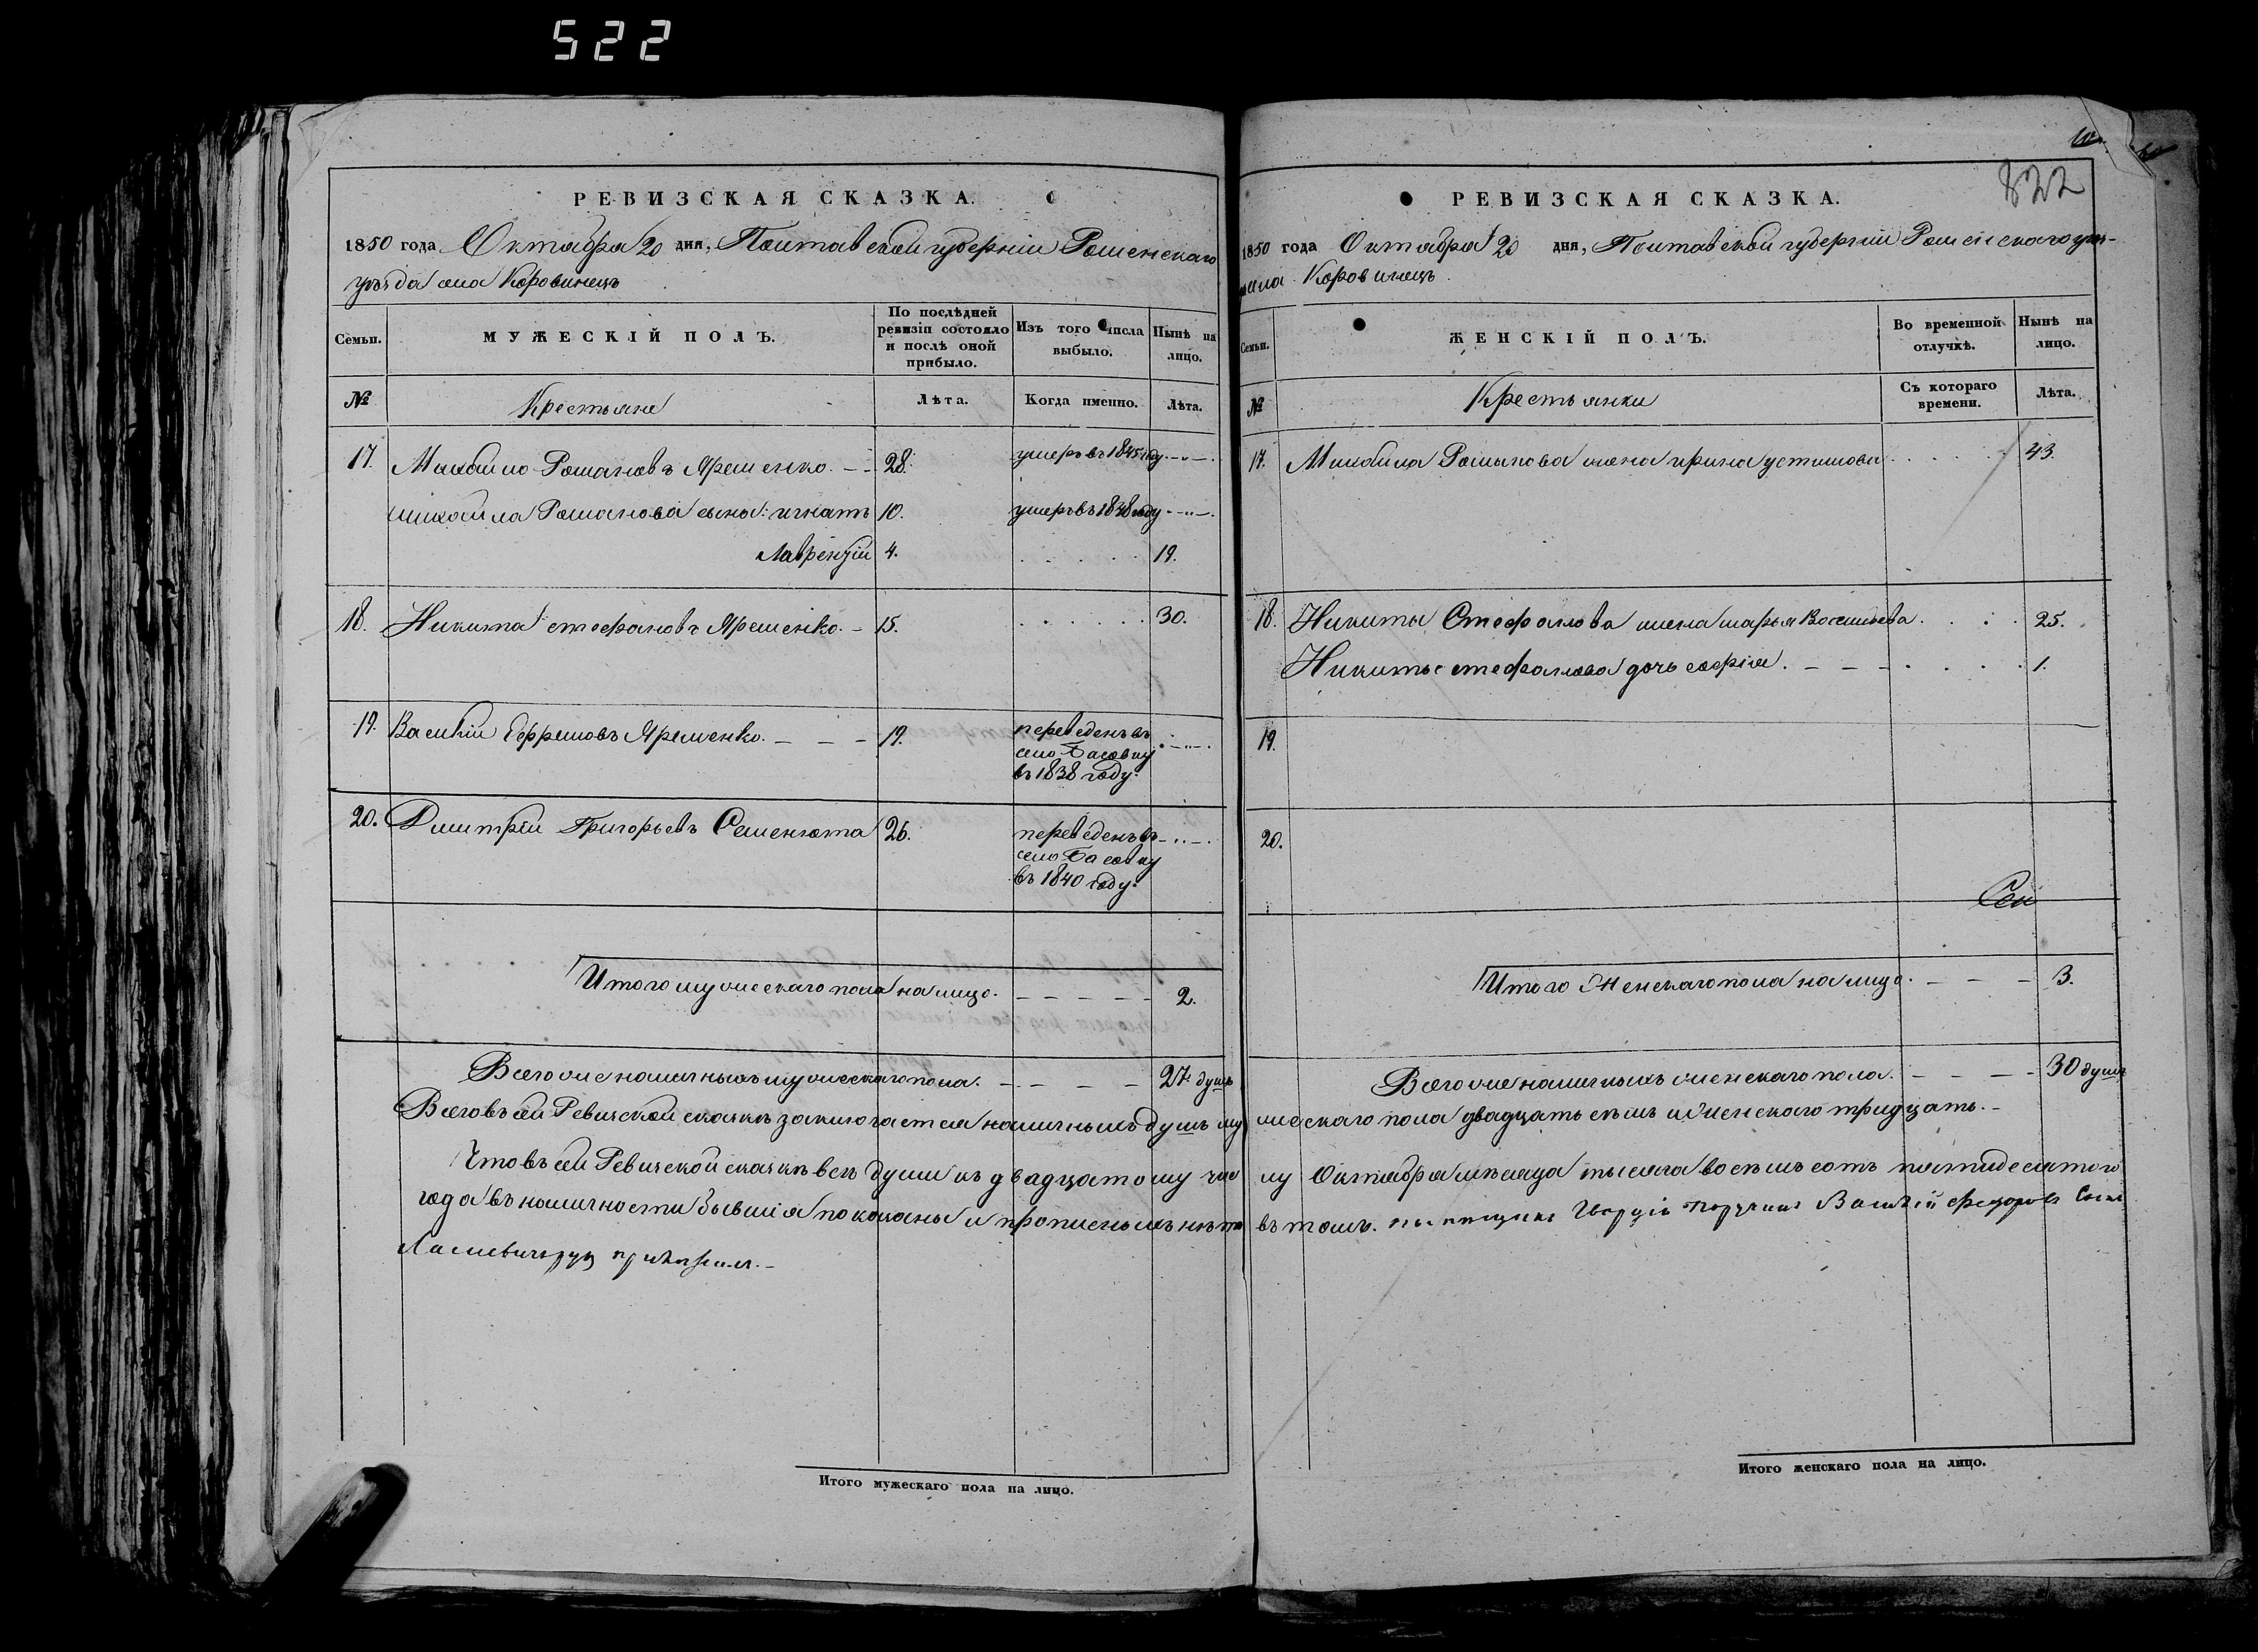 522
822
РЕВИЗСКАЯ СКАЗКА.
1850 года Октября 20 дня, Полтавской губерніи Роменскаго
уѣзда села Коровинецъ
Семьи.
МУЖЕСКІЙ ПОЛЪ.
По послѣдней ревизіи состояло и послѣ оной прибыло.
Изъ того числа выбыло.
Нынѣ на лицо.
№
Крестьяне
Лѣта.
Когда именно.
Лѣта.
17. Михайло Романовъ Яременко. 28. умеръ въ 1845 году
Михайла Романова сыны: игнатъ 10. умеръ въ 1848 году
Лаврентій 4. 19.
18. Никита стефановъ Яременко. 15. 30.
19. Василій Ефремовъ Яременко. 19. переведенъ въ
село Басовку
въ 1838 году.
20. Дмитрій Григорьевъ Семенюта 26. переведенъ въ
село Басовку
въ 1840 году.
Итого мужескаго пола на лицо. 2.
Всего же наличныхъ мужескаго пола. 27. душъ
РЕВИЗСКАЯ СКАЗКА.
1850 года Октября 20 дня, Полтавской губерніи Роменскаго уѣз-
села Коровинецъ
Семьи.
ЖЕНСКІЙ ПОЛЪ.
Во временной отлучкѣ.
Нынѣ на лицо.
№
Крестьянки
Съ котораго времени.
Лѣта.
17. Михайла Романова жена ирина устимова 43.
18. Никиты Стефанова жена марья Васильева 25.
Никиты стефанова дочь софія. 1.
19.
20.
Итого Женскаго пола на лицо. 3.
Всего же наличныхъ женскаго пола. 30 душъ
Всего въ сей Ревизской сказкѣ заключается наличныхъ душъ мужескаго пола двадцать семь и женскаго тридцать.
Что въ сей Ревизской сказкѣ всѣ души къ двадцатому числу Октября мѣсяца тысяча восемь сотъ пятидесятого
года въ наличности бывшія показаны и прописныхъ нѣтъ въ томъ. Гвардіи Поручикъ Василій Федоровъ Сынъ
Итого мужескаго пола на лицо.
Итого женскаго пола на лицо.